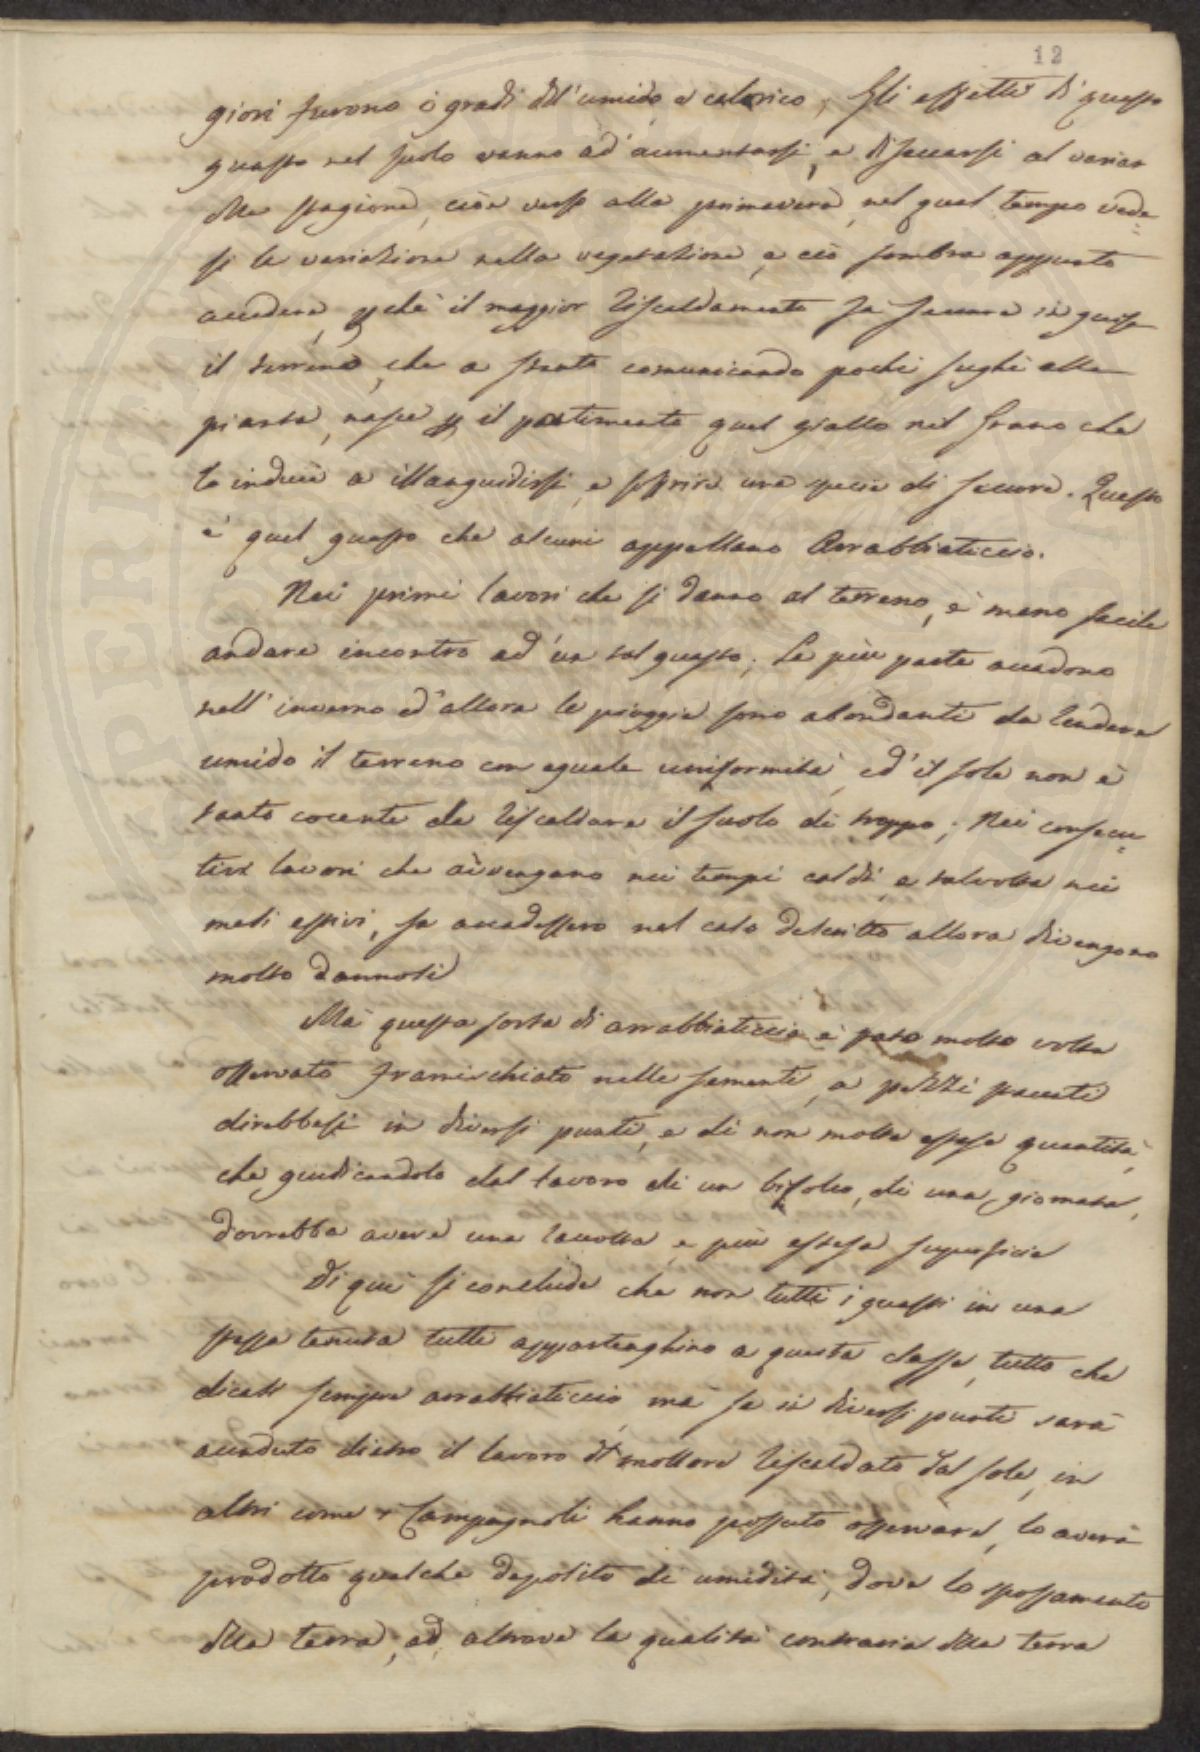 12
giori furono i gradi dell'umido e calorico; Gli effetti di questo
guasto nel suolo vanno ad aumentarsi, e diseccarsi al variar
della stagione, cioè verso alla primavera, nel qual tempo vede-
si la variazione nella vegetazione, e ciò sembra appunto
accadere, perchè il maggior riscaldamento fa seccare in guisa
il terreno, che a stento comunicando pochi sughi alla
pianta, nasce per il patimento quel giallo nel Grano che
lo induce a illanguidirsi, e soffrire una specie di seccore. Questo
è quel guasto che alcuni appellano Arrabbiaticcio.
Nei primi lavori che si danno al terreno, è meno facile
andare incontro ad un tal guasto; Le più parte accadono
nell'inverno ed'allora le pioggie sono abondanti da rendere
umido il terreno con eguale uniformità, ed'il sole non è
tanto cocente da riscaldare il suolo di troppo; Nei consecu-
tivi lavori che avvengano nei tempi caldi, e talvolta nei
mesi estivi, se accadessero nel caso descritto allora divengono
molto dannosi
Ma questa sorta di arrabbiaticcio è stato molte volte
osservato framischiato nelle sementi, a pezzi staccati
direbbesi in diversi punti, e di non molta estesa quantità,
che giudicandolo dal lavoro di un bifolco, di una giornata,
dovrebbe avere una raccolta, e più estesa superficie
Di quì si conclude che non tutti i guasti in una
stessa tenuta tutti appartenghino a questa classe, tutto che
dicasi sempre arrabbiaticcio, mà se in diversi punti sarà
accaduto dietro il lavoro di mollore riscaldato dal sole, in
altri come i Campagnoli hanno possuto osservare, lo averà
prodotto qualche deposito di umidità, dove lo spossamento
della terra, ad altrove la qualità contraria della terra